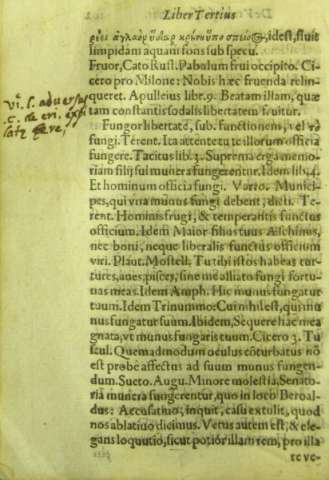 Liber Tertius
ῥέει ἀγλαὸν ὕδωρ κρήνη ὑπὸ σπείους, idest, fluit
limpidam aquam fons sub specu.
Fruor, Cato Rust. Pabulum frui occipito. Ci-
cero pro Milone: Nobis hæc fruenda relin-
queret. Apulleius lib. 9. Beatam illam, quæ
tam constantis sodalis libertatem fruitur.
Fungor libertatē, sub. functionem, vel τὸ
fungi. Terent. Ita attente tu te illorum officia
fungere. Tacitus lib. 3. Suprema erga memo-
riam filij sui munera fungerentur. Idem lib. 4.
Et hominum officia fungi. Varro. Munici-
pes, qui vna munus fungi debent, dicti. Te-
rent. Hominis frugi, & temperantis functus
officium. Idem Maior filius tuus Æschinus,
nec boni, neque liberalis functus officium
viri. Plaut. Mostell. Tu tibi istos habeas tur-
tures, aues, pisces, sine me alliato fungi fortu-
nas meas. Idem Amph. Hic munus fungatur
tuum. Idem Trinummo: Cui nihil est, qui mu
nus fungatur suum. Ibidem, Sequere hac mea
gnata, vt munus fungaris tuum. Cicero 3. Tu
scul. Quemadmodum oculus cōturbatus nō
est probe affectus ad suum munus fungen-
dum. Sueto. Augu. Minore molestia, Senato-
ria munera fungerentur, quo in loco Beroal-
dus: Accusatiuo, inquit, casu extulit, quod
nos ablatiuo dicimus. Verus autem est, & ele-
gans loquutio, sicut potiór illam rem, pro illa
vi. l. adversus
c. de cri. exp
latę here.